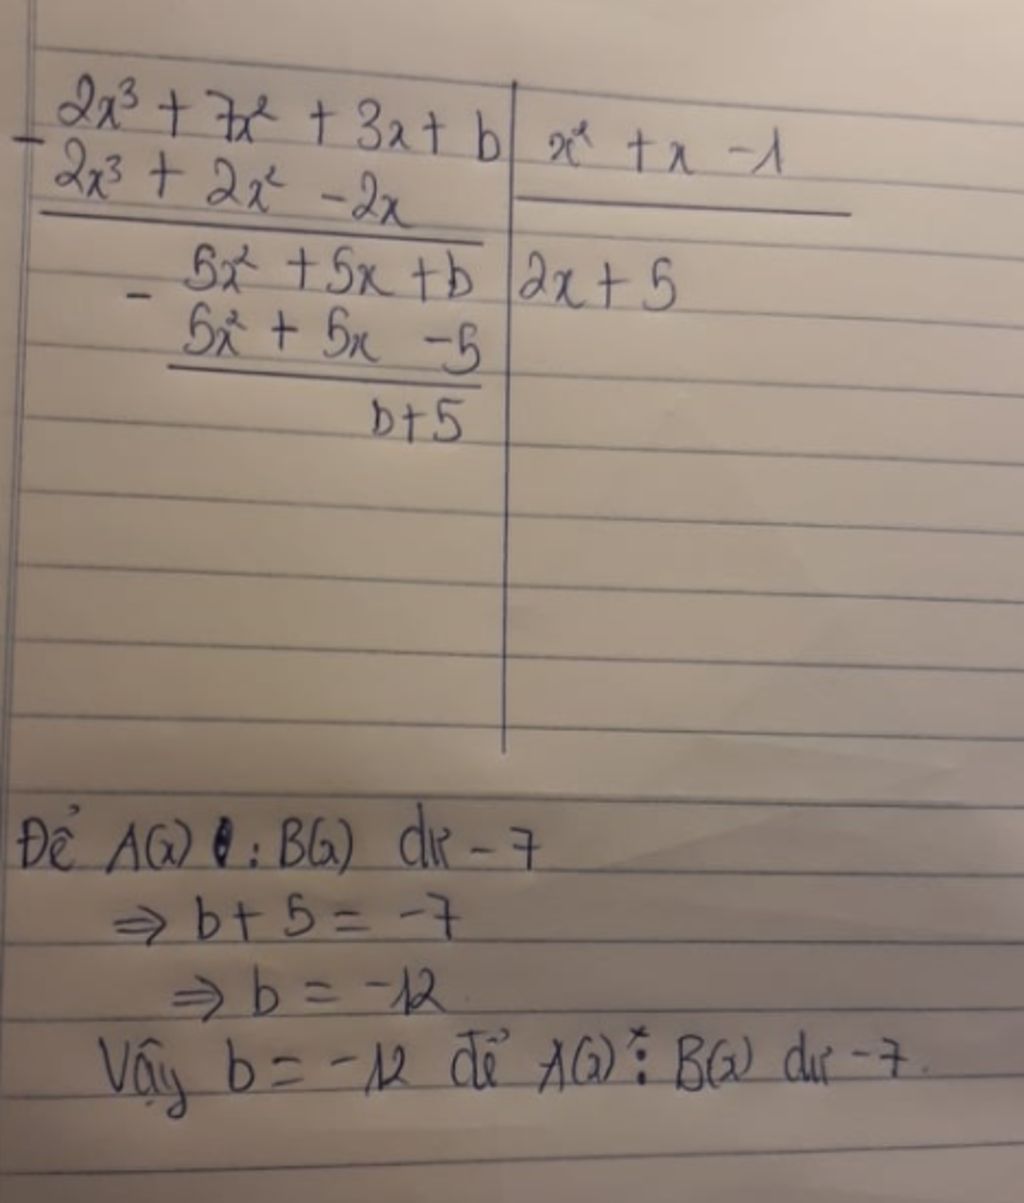 2x³ + 7x² + 3x + b | x² + x - 1
- 2x³ + 2x² - 2x
5x² + 5x + b | 2x + 5
- 5x² + 5x - 5
b + 5
Để A(x) : B(x) dư - 7
⇒ b + 5 = -7
⇒ b = -12
Vậy b = -12 để A(x) : B(x) dư -7.